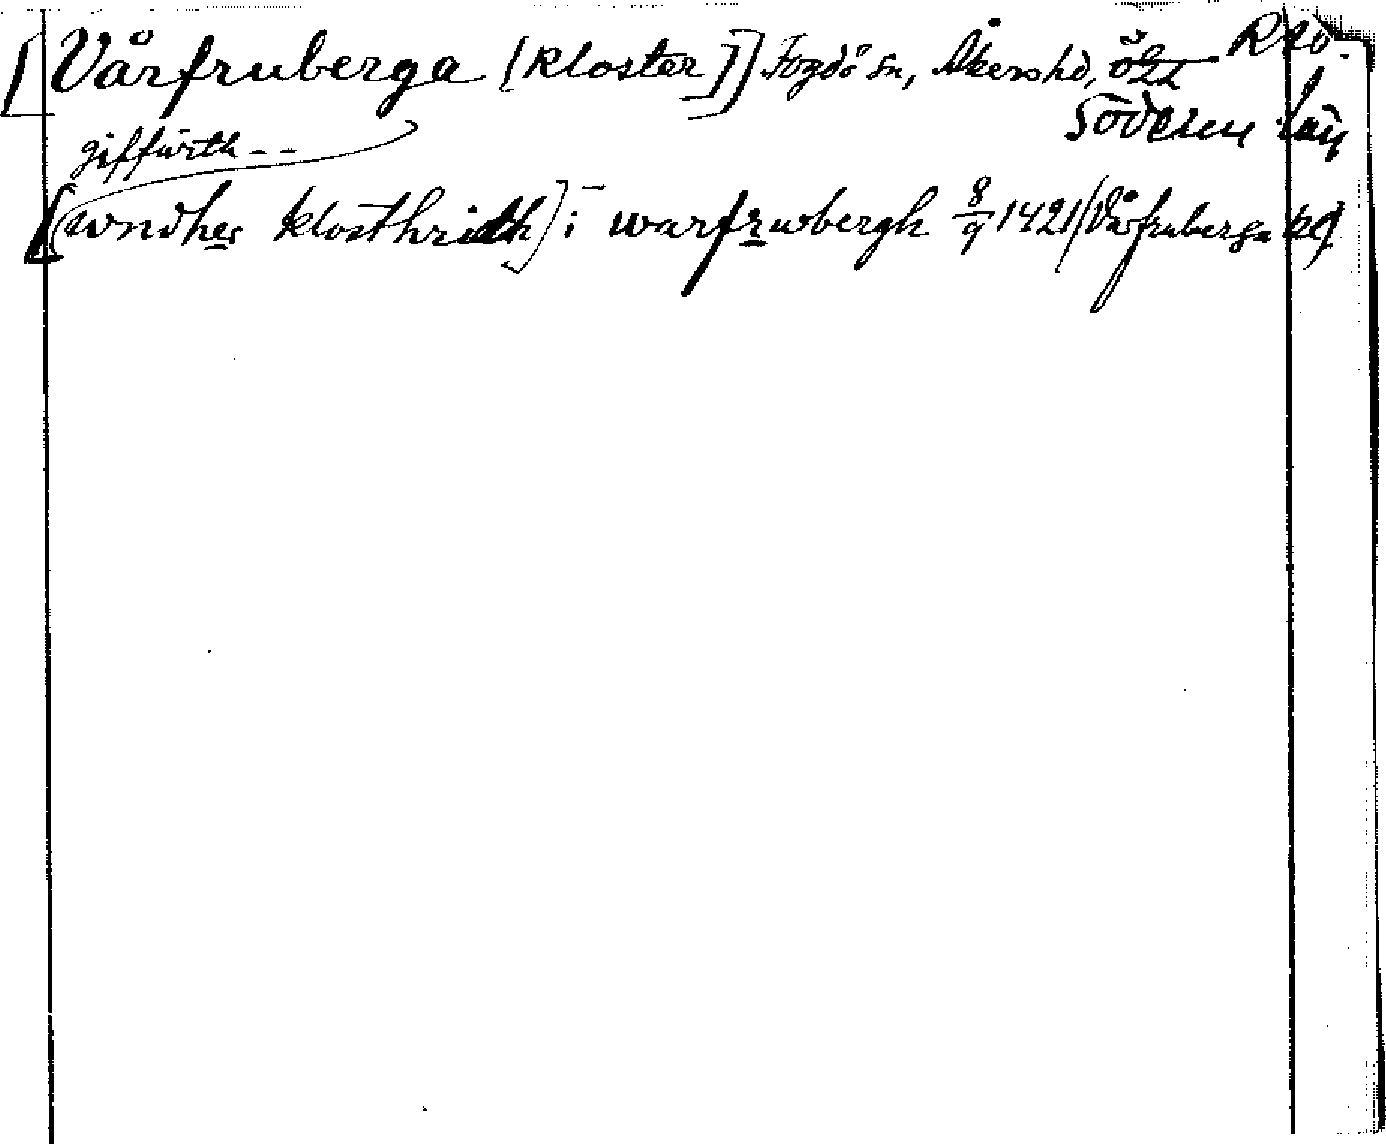 [Vårfruberga [Kloster]] Fogdö sn, Åkers hd, Ögtl Rsö.
Söderm. län
giffwith - -
[wndher klosthrith] i warfrwbergh 8/9 1421 (Vårfruberga kl)